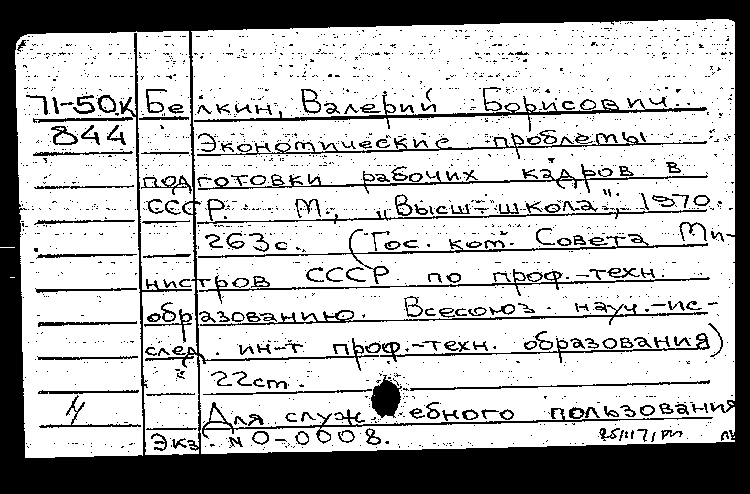 71-50К Белкин, Валерий Борисович.
844 Экономические проблемы
подготовки рабочих кадров в
СССР. М., "Высш. школа", 1970.
263с. (Гос. ком. Совета Ми-
нистров СССР по проф.-техн.
образованию. Всесоюз. науч.-ис-
след. ин-т проф.-техн. образования)
22см.
Для служебного пользования
Экз. № 0-0008.